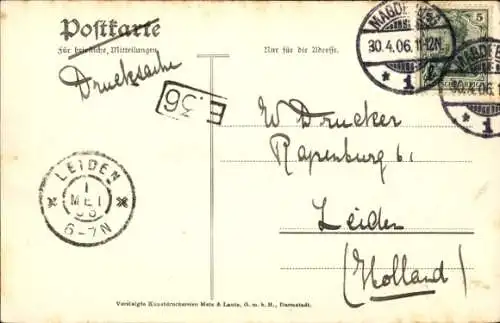 Postkarte
Für briefliche Mitteilungen
Nur für die Adresse.
Drucksache
E.36
MAGDEBURG
30.4.06.11-12N.
* 1
5
MAGDEBURG
30.4.06.11-12N.
* 1
W Drucker
Rapenburg 61
Leiden
(Holland)
LEIDEN
1
MEI
06
6-7N
Vereinigte Kunstdruckereien Metz & Lautz, G. m. b. H., Darmstadt.